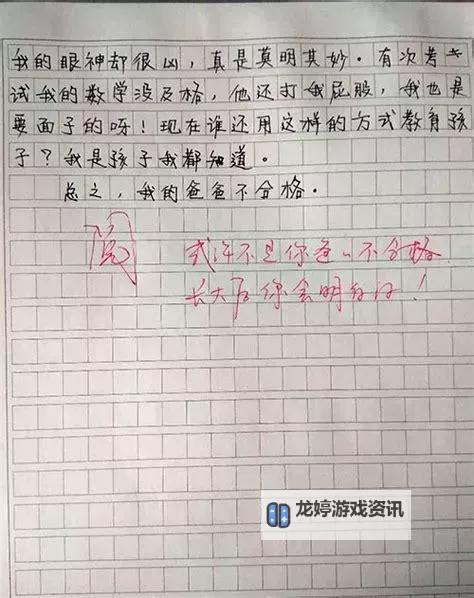 我的眼神却很凶，真是莫明其妙。有次考
试我的数学没及格，他还打我屁股，我也是
要面子的呀！现在谁还用这样的方式教育孩
子？我是孩子我都知道。
总之，我的爸爸不合格。
阅
或许不是你爸爸不合格
长大后你会明白的！
龙婷游戏资讯